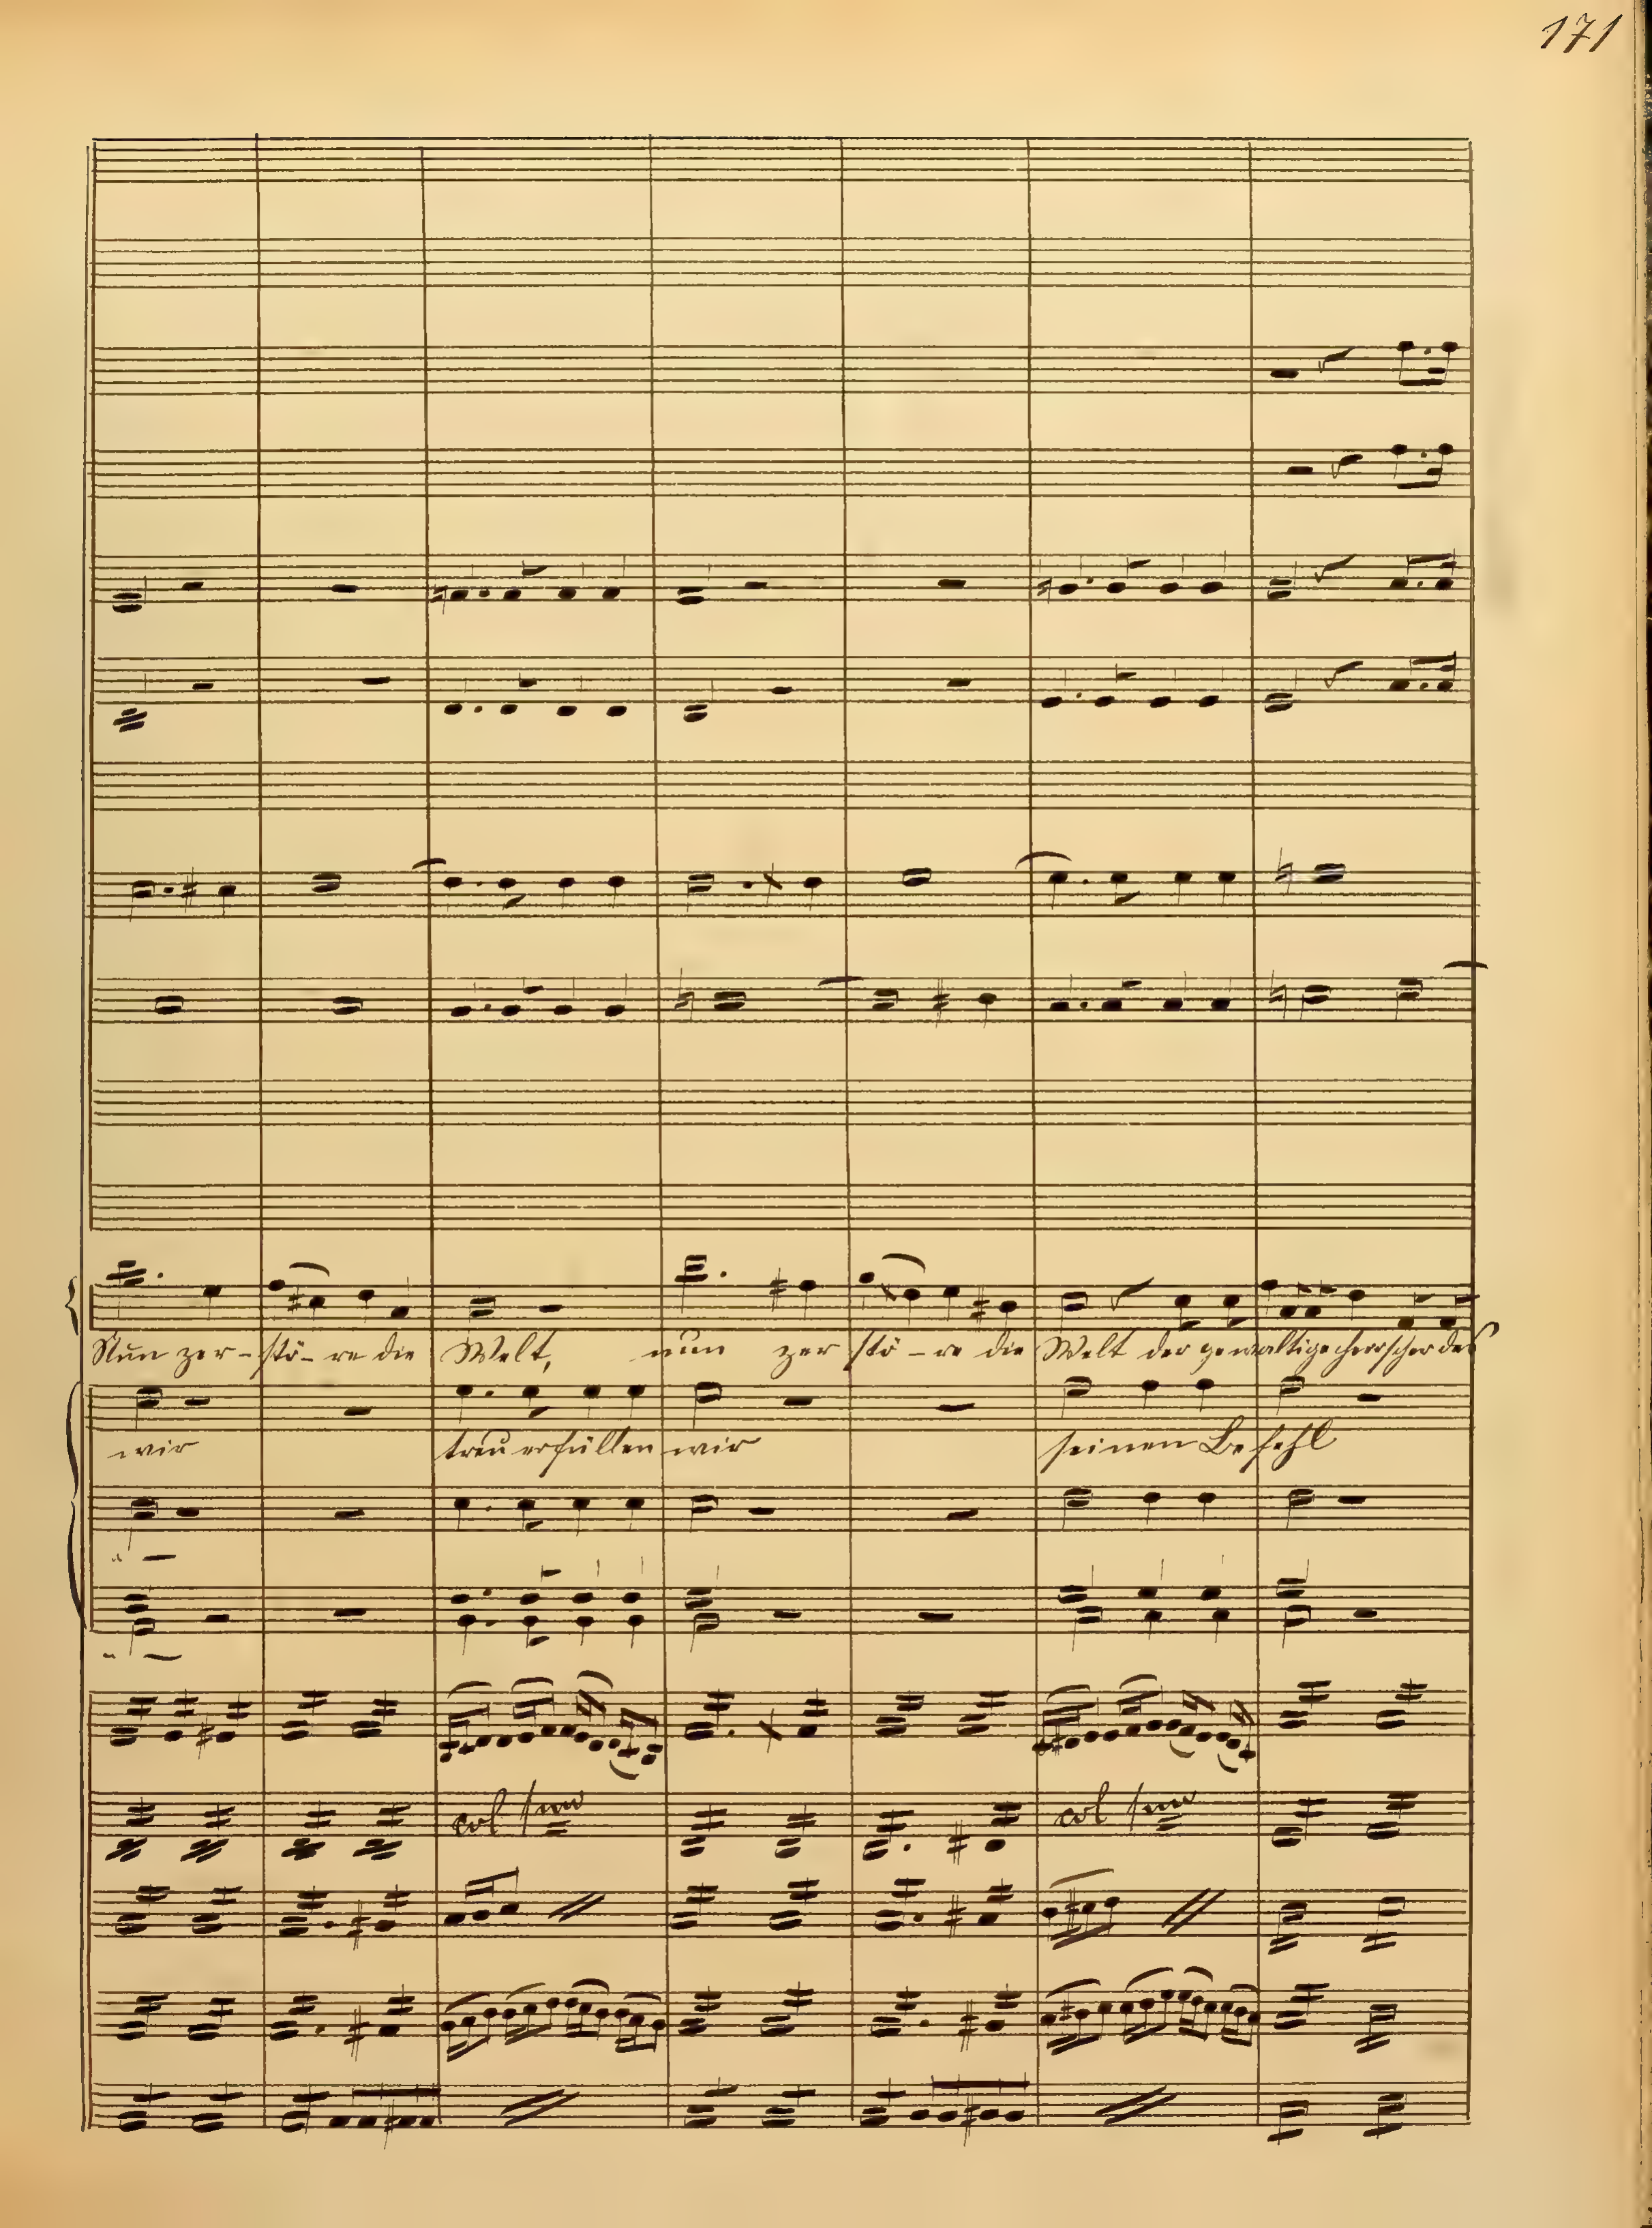 171
Nun zer-stö-re die Welt, nun zer stö-re die Welt der gewaltige Herrscher des
wir treu erfüllen wir seinen Befehl
col Imo col Imo